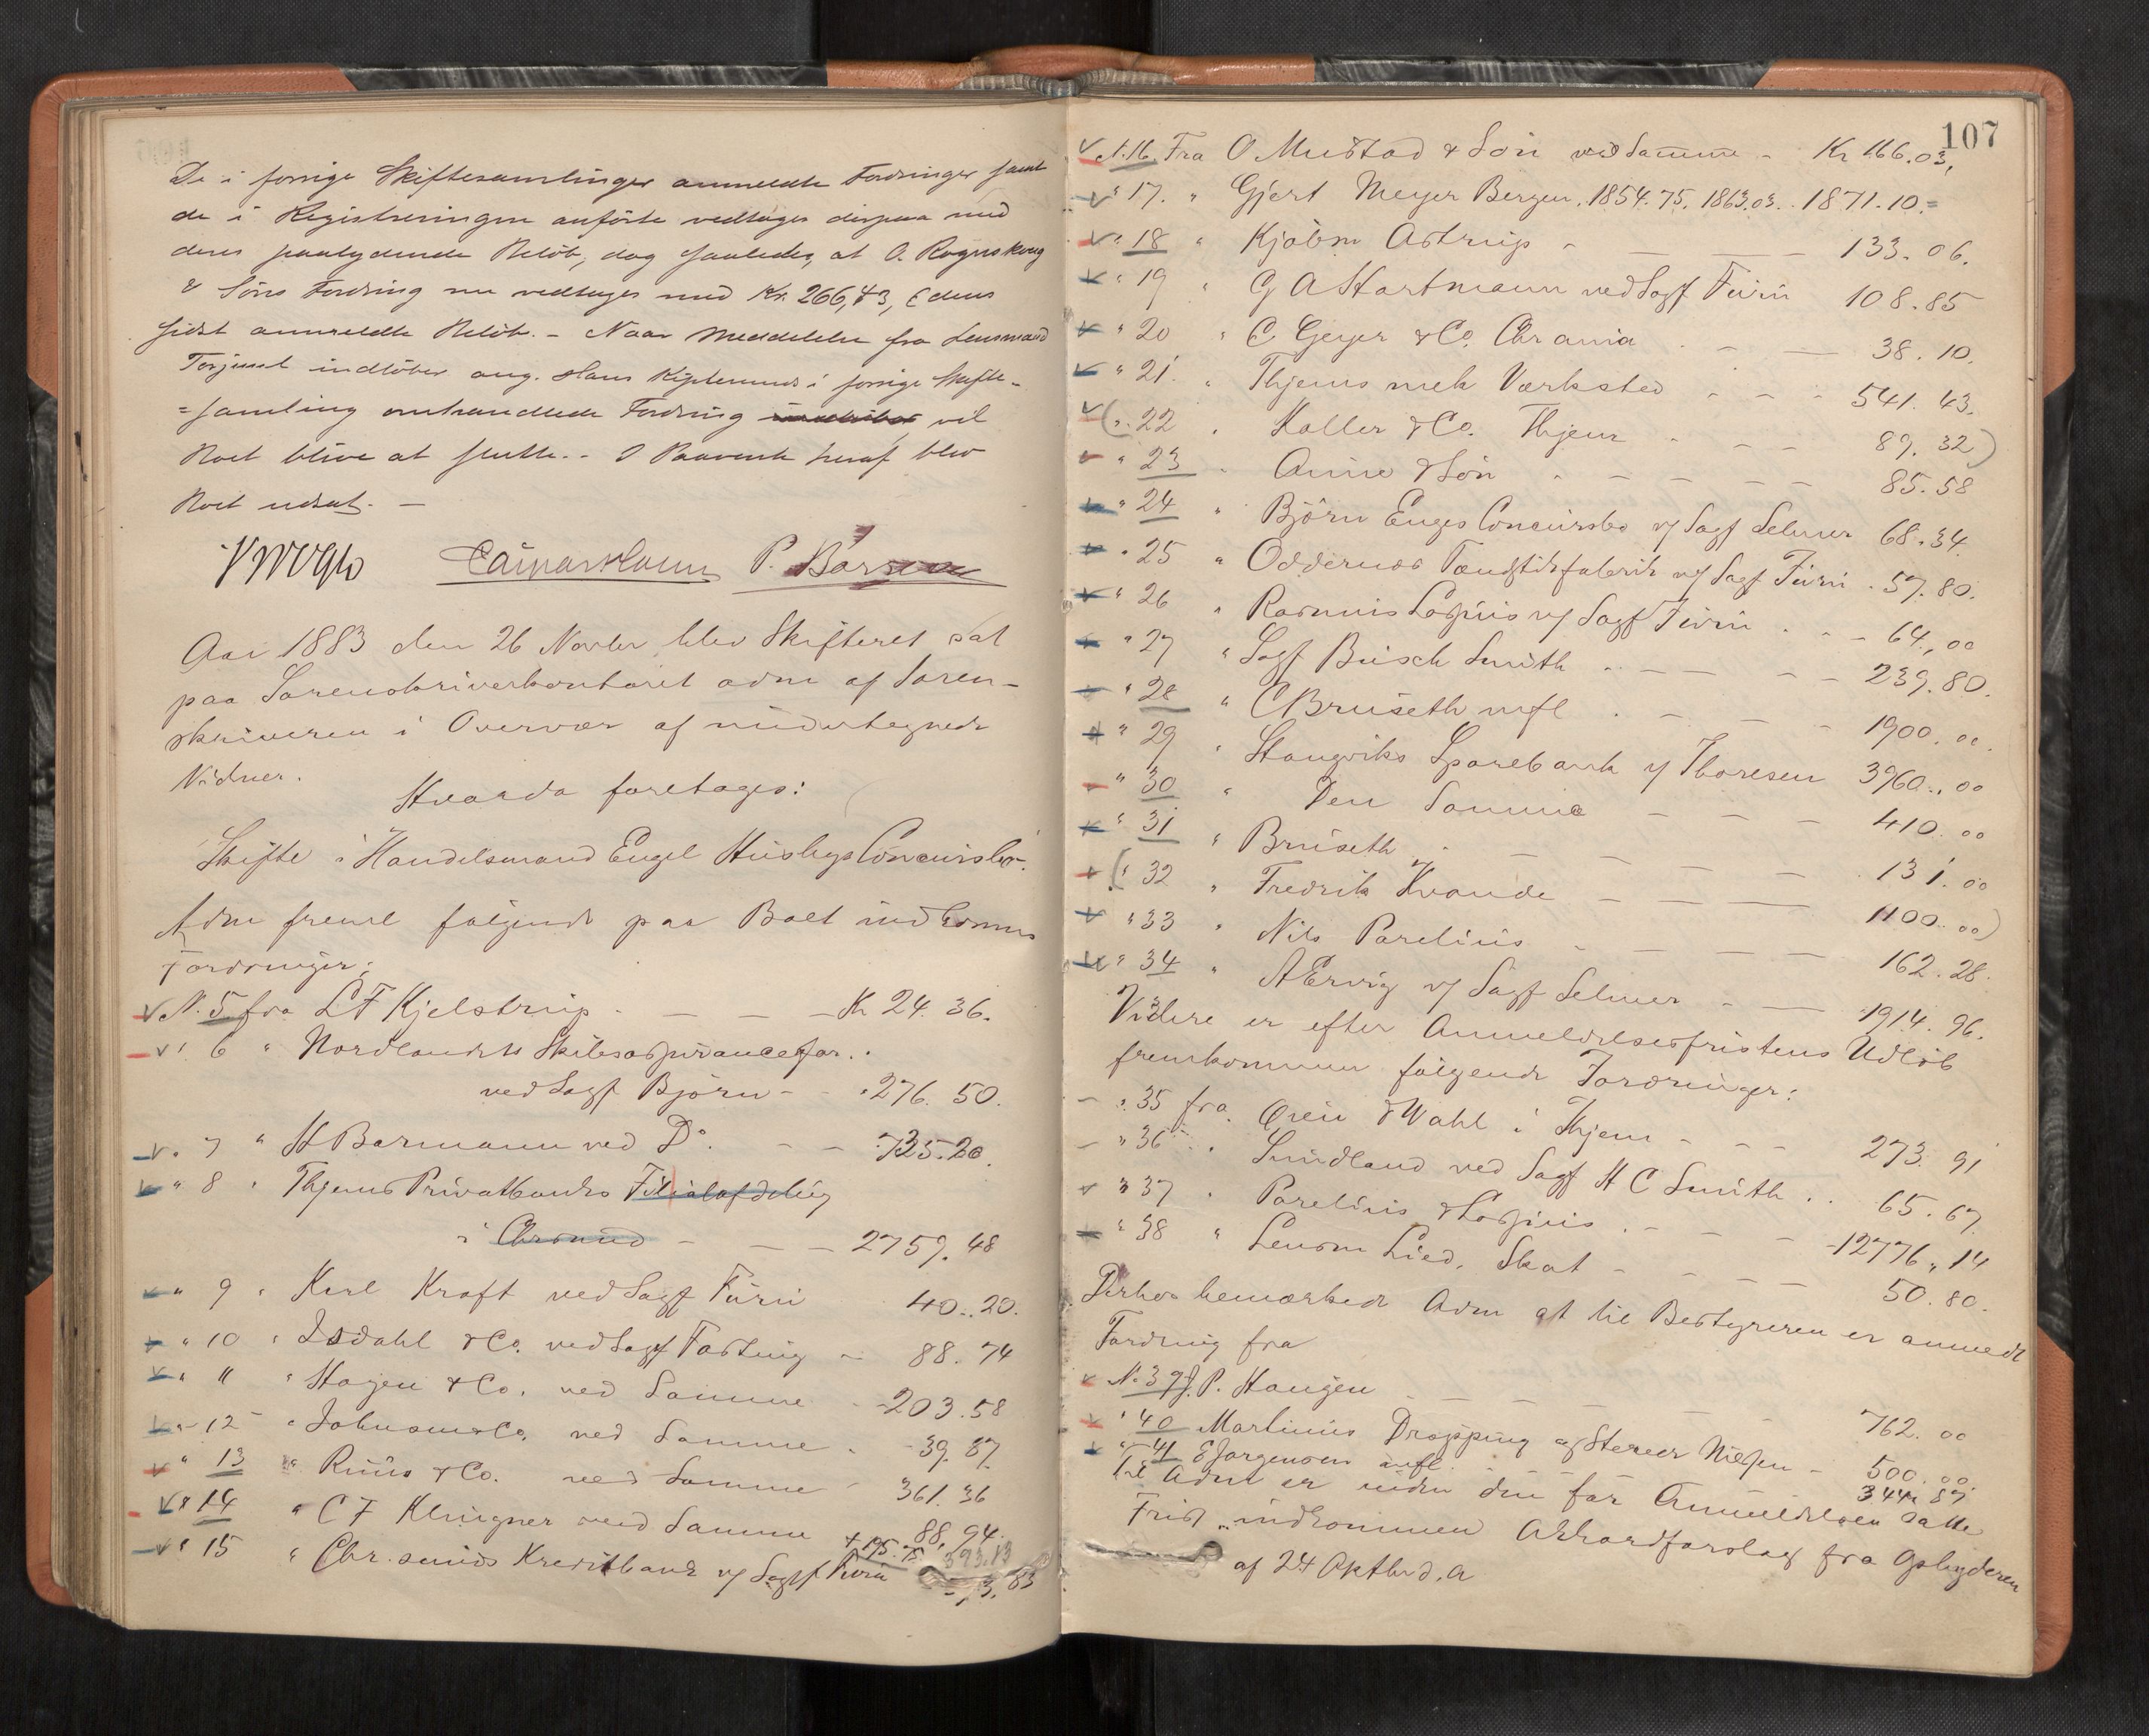 De i forrige Skiftesamlinger anmeldte Fordringer samt
de i Registreringen anførte vedtages derpaa med
deres paalydende Beløb, dog saaledes, at O. Rognskoug
& Søns Fordring nu vedtages med Kr. 266,43,
sidst anmeldte Beløb. – Naar Meddelelse fra Lensmand
indløber ang. Hans i forrige Skifte-
=samling omhandlede Fordring vil
Boet blive at slutte. – I Paavente heraf blev
Boet udsat. –
Casper P.
Aar 1883 den 26 Novbr blev Skifteret sat
paa Sorenskriverkontoret adm af Soren-
skriveren i Overvær af undertegnede
Vidner.
Hvorda foretages:
Skifte i Handelsmand Engel Husbys Concursbo.
Adm freml følgende paa Boet indkomne
Fordringer:
N. 5 fra L F Kjelstrup - - - Kr 24. 36.
" 6 " Nordlandske Skibsassurancefor.
ved Sagf Bjørn - - 276. 50.
" 7 " H Bormann ved Do. - - 725. 20.
" 8 " Thjems Privatbanks Filialafdeling
i Chrsund - - - 2759. 48
" 9 " Karl Kraft ved Sagf Furu 40. 20.
" 10 " Isdahl & Co. ved Sagf Fasting - 88. 74
" 11 " Hagen & Co. ved Samme - 203. 58
" 12 " Johnsen & Co. ved Samme - 39. 87.
" 13 " Ruus & Co. ved Samme - 361. 36
" 14 " C F Klingner ved Samme 88,94.
" 15 " Chr.sunds Kreditbank v/ Sagf Furu 393.13
107
N. 16. Fra O Mustad & Søn ved Samme - Kr 166.03,
" 17. " Gjert Meyer Bergen. 1854.75. 1863.03. 1871.10.=
" 18 " Kjøbm Astrup - - - 133. 06.
" 19 " G A Hartmann ved Sagf Furu 108. 85
" 20 " C Geyer & Co. Chrania - - 38. 10.
" 21. " Thjems mek Værksted - - - 541. 43.
(" 22 " Haller & Co. Thjem - - - 89. 32)
" 23 " Aune & Søn - - - - 85. 58
" 24 " Bjørn Enges Concursbo v/ Sagf Selmer 68. 34.
" 25 " Oddernes Tændstikfabrik v/ Sagf Furu . 57. 80.
" 26 " Rasmus Lossius v/ Sagf Furu . - - 64.,00
" 27 " Sagf Busch Smith - - - - 239. 80.
" 28 " C Bruseth mfl - - - - 1900. 00.
" 29 " Stangviks Sparebank v/ Thoresen 3960.. 00
" 30 " Den Samme - - - 410. 00
" 31 " Bruseth - - - - - 131. 00
(" 32 " Fredrik Kvande - - - 1100.. 00)
" 33 " Nils Parelius - - - - 162. 28.
" 34 " A Ervig v/ Sagf Selmer - - 1914. 96.
Videre er efter Anmeldelsesfristens Udløb
fremkommen følgende Fordringer:
" 35 fra Øien & Wahl i Thjem - - - 273. 91
" 36 " Sundland ved Sagf H C Smith . . 65. 67.
" 37 " Parelius & Lossius . - - - 12776,, 14
" 38 " Lensm Lied, Skat - - - - 50. 80.
Derhos bemærkede Adm at til Bestyreren er anmedt
Fordring fra
N. 39 f. P. Haugen - - - - 762. 00
" 40 Martinus Drøpping Nielsen - 500. 00
" 41 E Jørgensen mfl - - 344. 89
Til Adm er inden den for Anmeldelsen satte
Frist indkommen Akkordforslag fra Opbyderen
af 24 Oktbr d. A